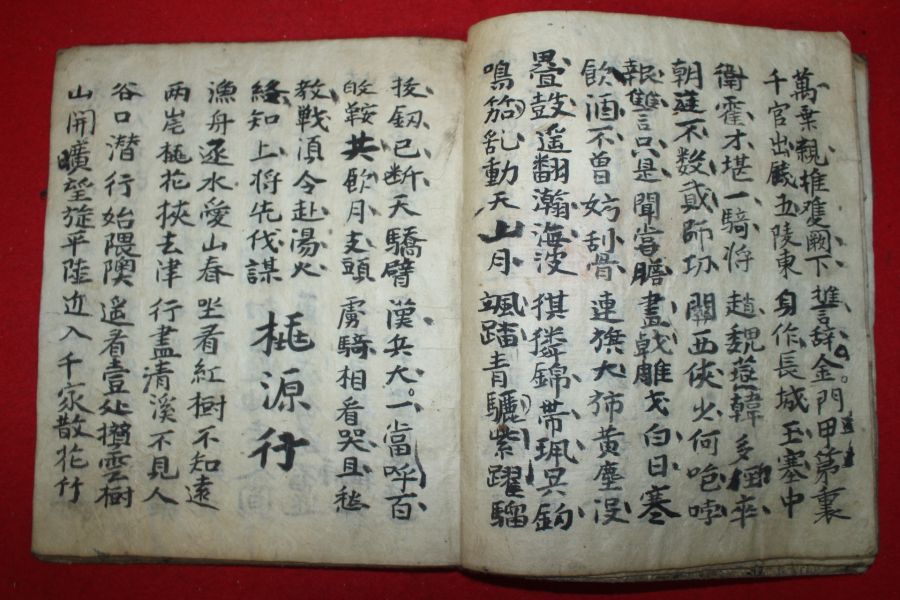 萬乗親推雙闕下 誓辭金。門甲第裏
千官出餞五陵東 身作長城玉塞中
衛霍才堪一騎將 趙魏燕韓多勁卒
朝廷不数貳師功 關西俠少何咆哱
報讐只是聞嘗膽 畫戟雕戈白日寒
飲酒不曾妨刮骨 連旗大斾黄塵没
疊鼓遥翻瀚海波 猉獜錦帶珮吳鈎
鳴笳乱動天山月 颯踏青驪紫躍騮
拔釰已断天驕臂 漢兵大。一當呼百
皈鞍共飲月支頭 虜騎相看哭且愁
教戰湏令赴湯火
終知上將先伐謀
桃源行
漁舟逐水愛山春 坐看紅樹不知遠
兩岸桃花挾去津 行盡清溪不見人
谷口潜行始隈隩 遥看壹处攅雲樹
山開曠望旋平陸 近入千家散花竹